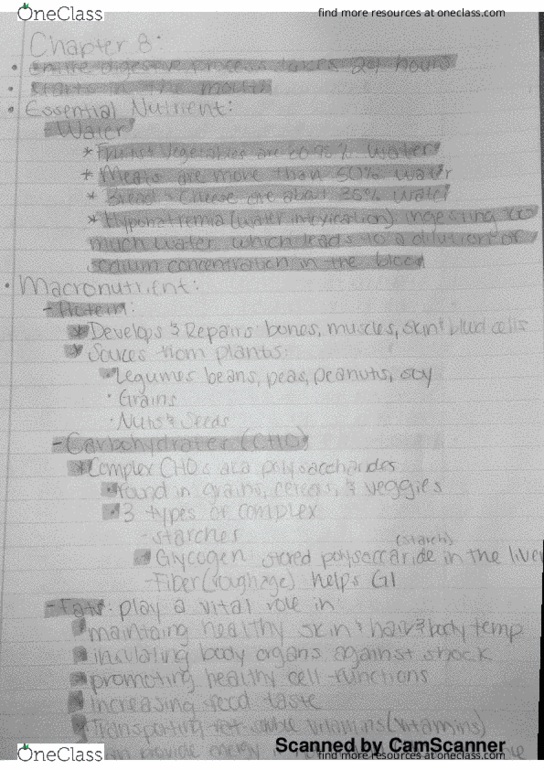 OneClass
find more resources at oneclass.com
Chapter 8:
• entire digestive process takes 24 hours
• starts in the mouth
• Essential Nutrient:
- Water
* Fruits & Vegetables are 80-95% water
* Meats are more than 50% water
* Bread & Cheese are about 35% water
* Hyponatremia (water intoxication), ingesting too
much water, which leads to a dilution of
sodium concentration in the blood
• Macronutrient:
- Protein:
* Develops & Repairs bones, muscles, skin & blud cells
* Sources from plants:
• Legumes beans, peas, peanuts, soy
• Grains
• Nuts & Seeds
- Carbohydrates (CHO)
* Complex CHOs aka polysaccharides
• found in grains, cereals, & veggies
3 types of complex
- starches
(starch)
Glycogen stored polysaccaride in the liver
- Fiber (roughage) helps GI
- Fats: play a vital role in
maintaing healthy skin & hair & body temp
insulating body organs against shock
promoting healthy cell functions
Increasing food taste
Transporting fat soluble vitamins (vitamins)
can provide energy
Scanned by CamScanner
OneClass
find more resources at oneclass.com